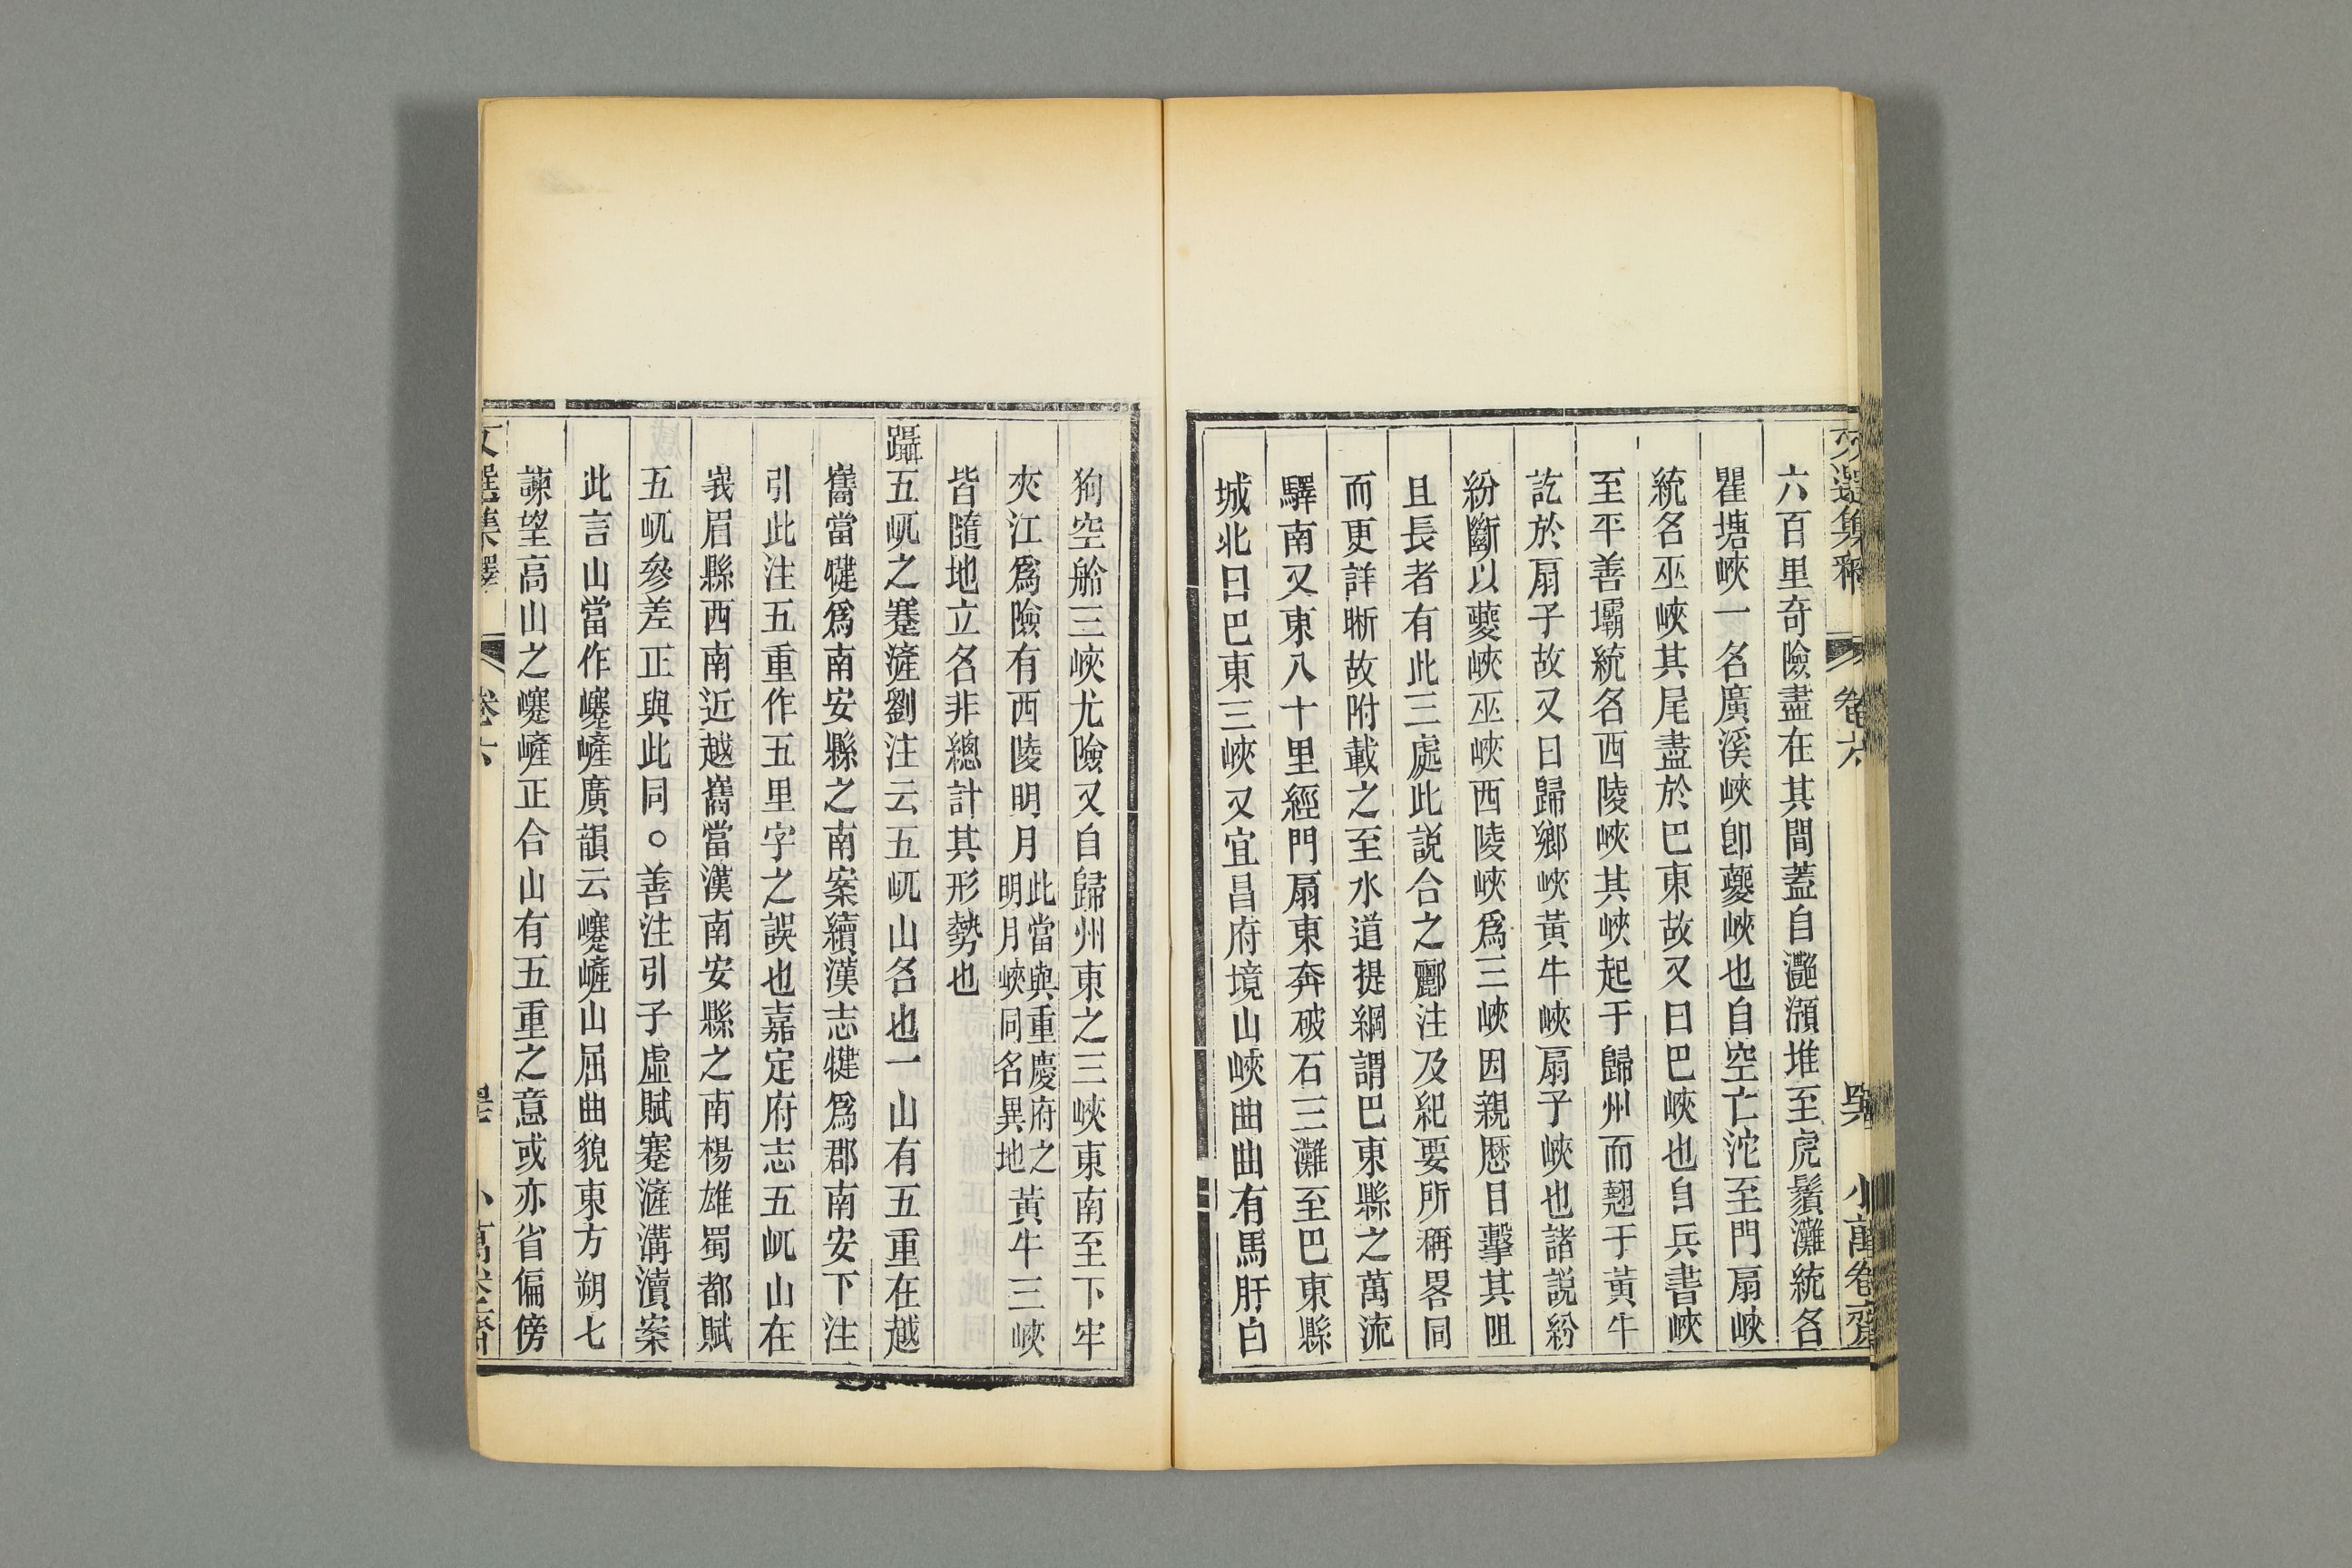 文選集釋 卷六 小萬卷齋
六百里奇險盡在其間蓋自灩澦堆至虎鬚灘統名
瞿塘峽一名廣溪峽卽夔峽也自空亡沱至門扇峽
統名巫峽其尾盡於巴東故又曰巴峽也自兵書峽
至平善壩統名西陵峽其峽起于歸州而翹于黃牛
訖於扇子故又曰歸鄉峽黃牛峽扇子峽也諸說紛
紛斷以夔峽巫峽西陵峽爲三峽因親歷目擊其阻
且長者有此三處此說合之酈注及紀要所稱畧同
而更詳晰故附載之至水道提綱謂巴東縣之萬流
驛南又東八十里經門扇東奔破石三灘至巴東縣
城北曰巴東三峽又宜昌府境山峽曲曲有馬肝白
狗空舲三峽尤險又自歸州東之三峽東南至下牢
夾江爲險有西陵明月此當與重慶府之明月峽同名異地黃牛三峽
皆隨地立名非總計其形勢也
躡五屼之蹇滻劉注云五屼山名也一山有五重在越
巂當犍爲南安縣之南案續漢志犍爲郡南安下注
引此注五重作五里字之誤也嘉定府志五屼山在
峩眉縣西南近越巂當漢南安縣之南楊雄蜀都賦
五屼參差正與此同○善注引子虛賦蹇滻溝瀆案
此言山當作㠾嵼廣韻云㠾嵼山屈曲貌東方朔七
諫望高山之㠾嵼正合山有五重之意或亦省偏傍
文選集釋 卷六 小萬卷齋